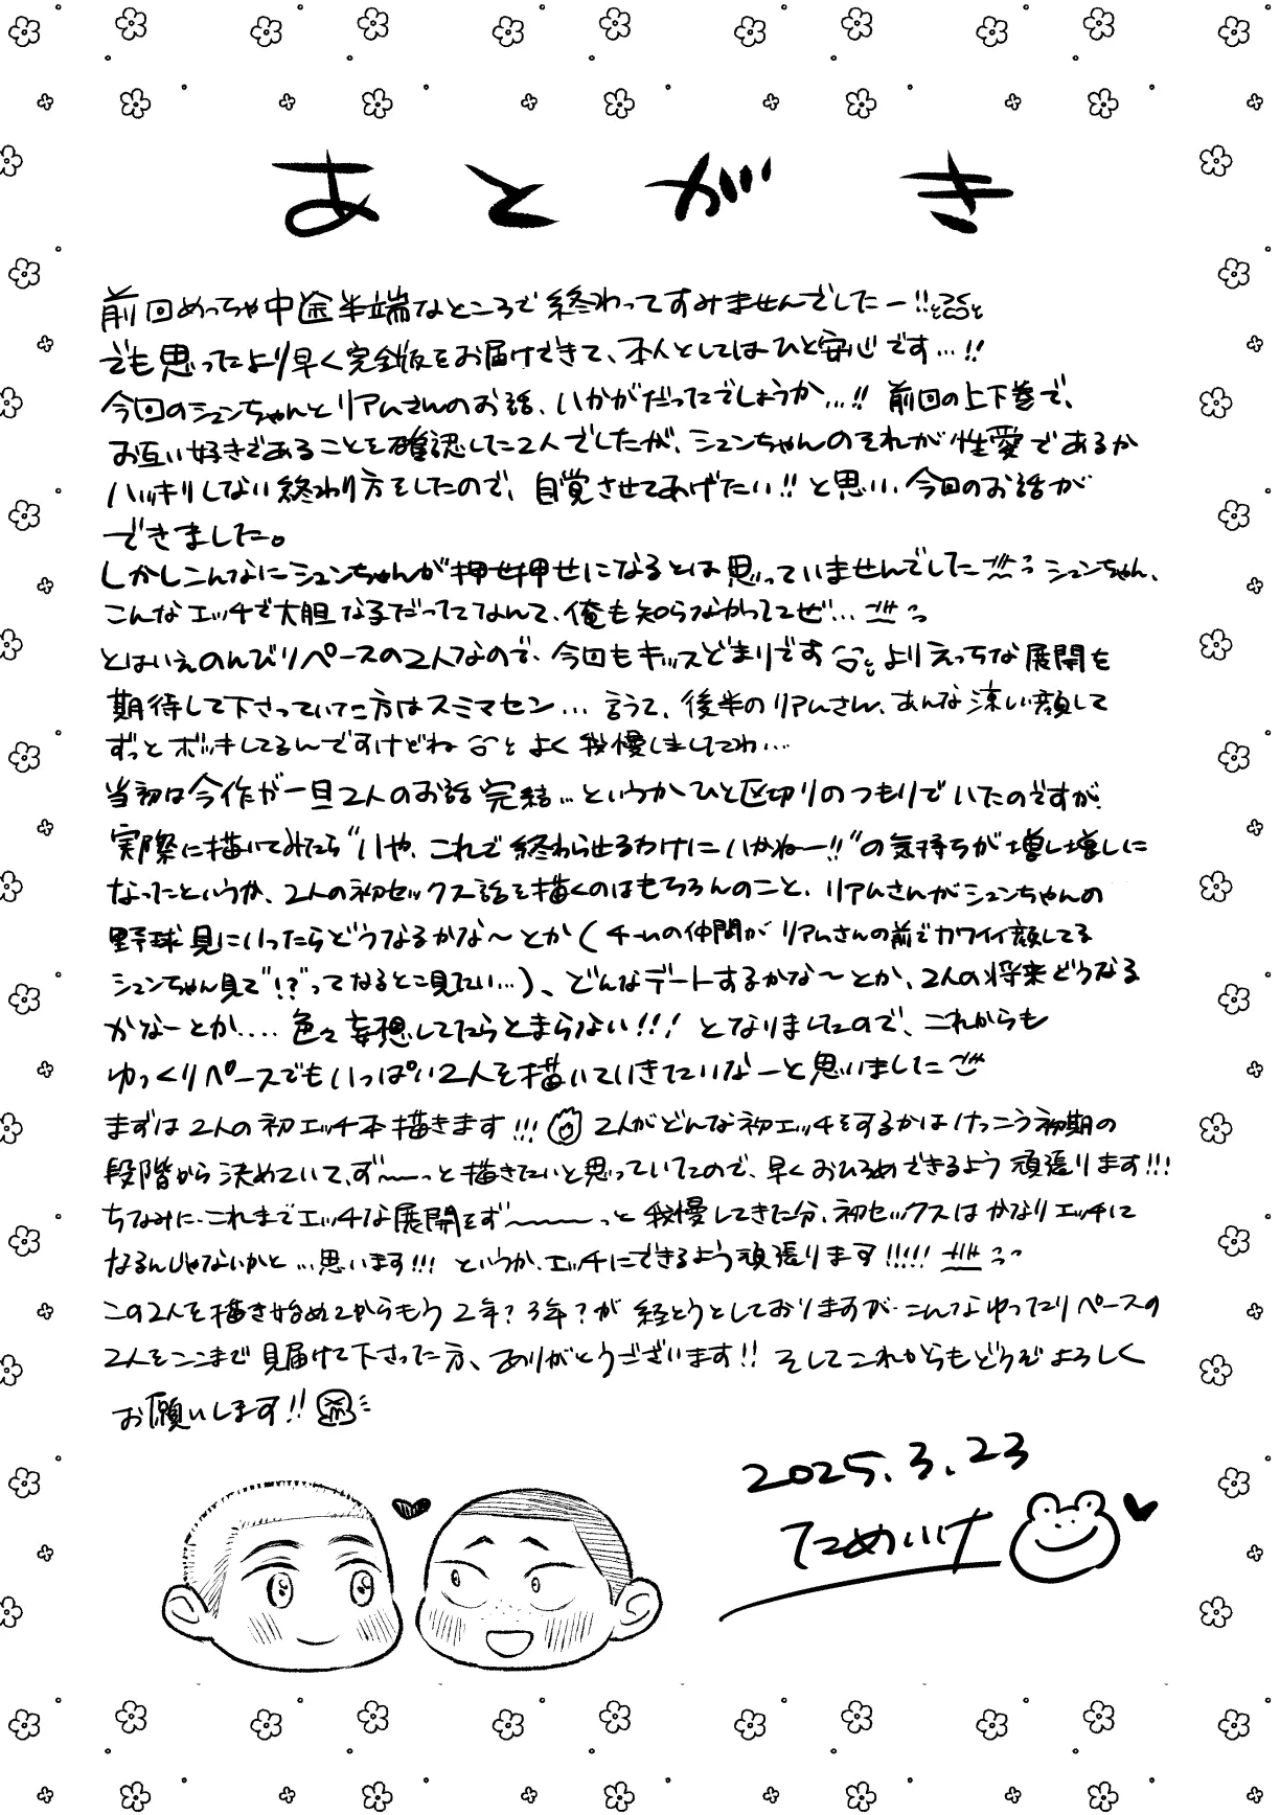 あとがき
前回めっちゃ中途半端なところで終わってすみませんでしたー!!
でも思ったより早く完全版をお届けできて、本人としてはひと安心です…!!
今回のシュンちゃんとリアムさんのお話、いかがだったでしょうか…!! 前回の上下巻で、
お互い好きであることを確認した2人でしたが、シュンちゃんのそれが性愛であるか
ハッキリしない終わり方をしたので、自覚させてあげたい!!と思い、今回のお話が
できました。
しかしこんなにシュンちゃんが押せ押せになるとは思っていませんでした シュンちゃん、
こんなエッチで大胆な子だったなんて、俺も知らなかったぜ…
とはいえのんびりペースの2人なので、今回もキッスどまりです よりえっちな展開を
期待して下さっていた方はスミマセン… 言うて、後半のリアムさん、あんな涼しい顔して
ずっとボッキしてるんですけどね よく我慢しましたわ…
当初は今作が一旦2人のお話完結…というかひと区切りのつもりでいたのですが、
実際に描いてみたら"いや、これで終わらせるわけにいかねー!!"の気持ちが増し増しに
なったというか、2人の初セックス話を描くのはもちろんのこと、リアムさんがシュンちゃんの
野球見にいったらどうなるかな〜とか(チームの仲間がリアムさんの前でカワイイ顔してる
シュンちゃん見て"!?"ってなるとこ見たい…)、どんなデートするかな〜とか、2人の将来どうなる
かなーとか.... 色々妄想してたらとまらない!!! となりましたので、これからも
ゆっくりペースでもいっぱい2人を描いていきたいなーと思いました
まずは2人の初エッチ本描きます!!! 2人がどんな初エッチをするかはけっこう初期の
段階から決めていて、ず〜〜っと描きたいと思っていたので、早くおひろめできるよう頑張ります!!!
ちなみに、これまでエッチな展開をず〜〜〜〜っと我慢してきた分、初セックスはかなりエッチに
なるんじゃないかと…思います!!! というか、エッチにできるよう頑張ります!!!!!
この2人を描き始めてからもう2年?3年?が経とうとしておりますが、こんなゆったりペースの
2人をここまで見届けて下さった方、ありがとうございます!! そしてこれからもどうぞよろしく
お願いします!!
2025.3.23
ためいけ